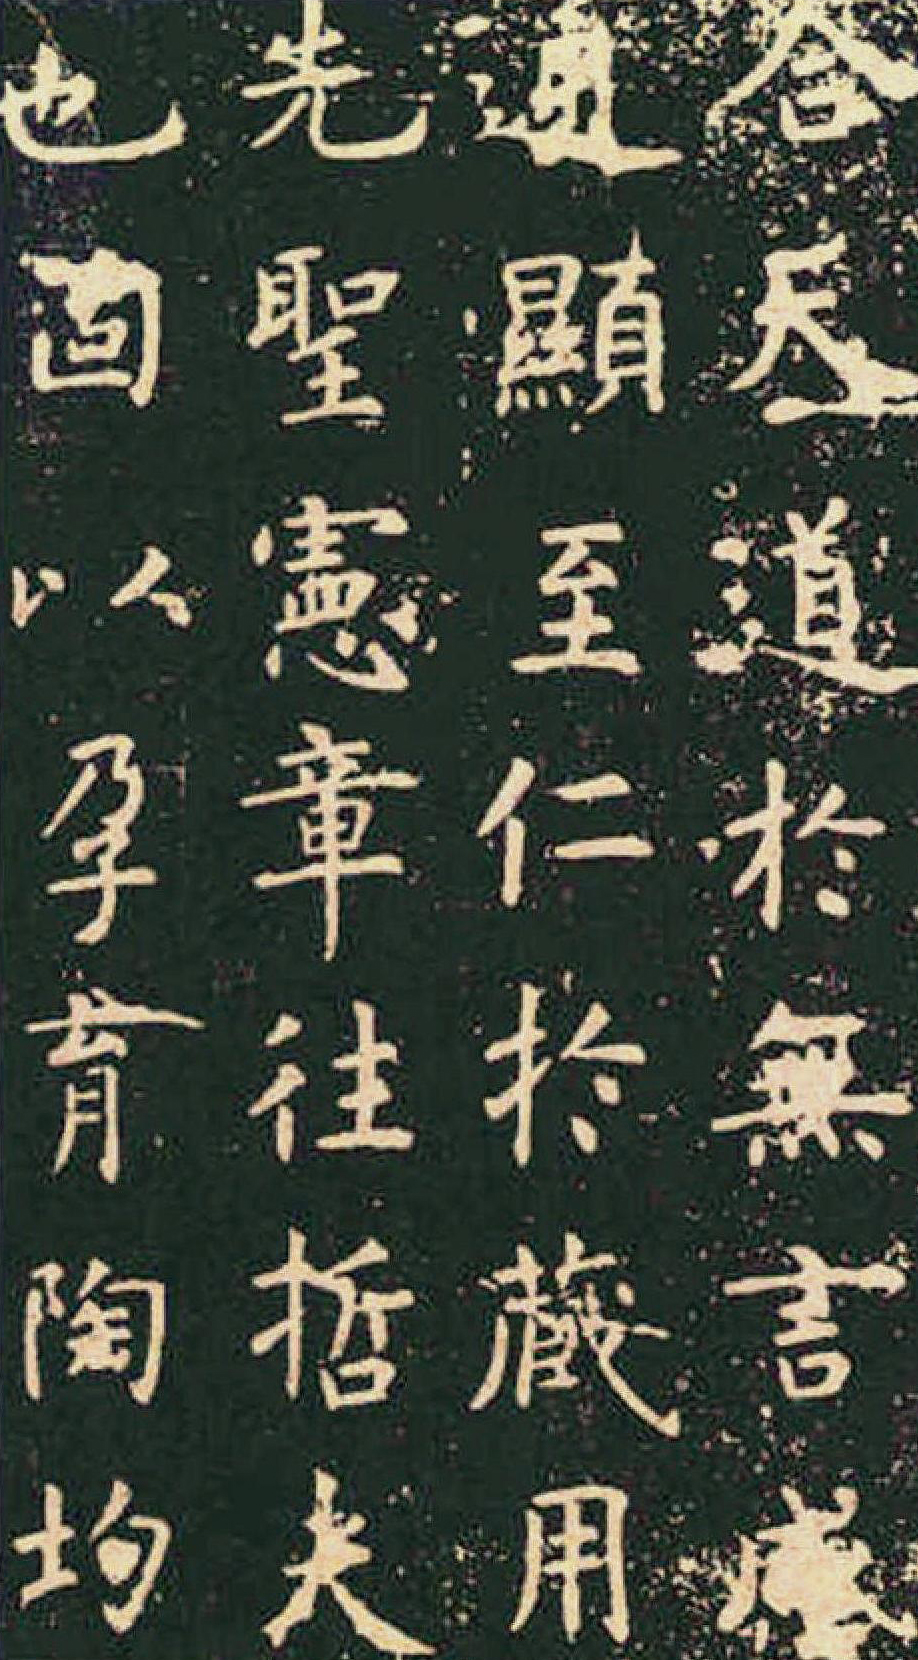 合天道於無言
通顯至仁於藏用
先聖憲章往哲夫
也固以孕育陶均